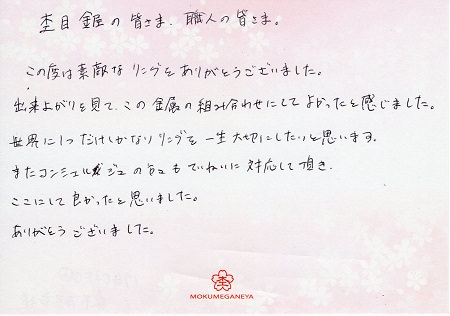 杢目金屋の皆さま、職人の皆さま。
この度は素敵なリングをありがとうございました。
出来上がりを見て、この金属の組み合わせにしてよかったと感じました。
世界に1つだけしかないリングを一生大切にしたいと思います。
またコンシェルジュの方もていねいに対応して頂き、
ここにして良かったと思いました。
ありがとうございました。
MOKUMEGANEYA